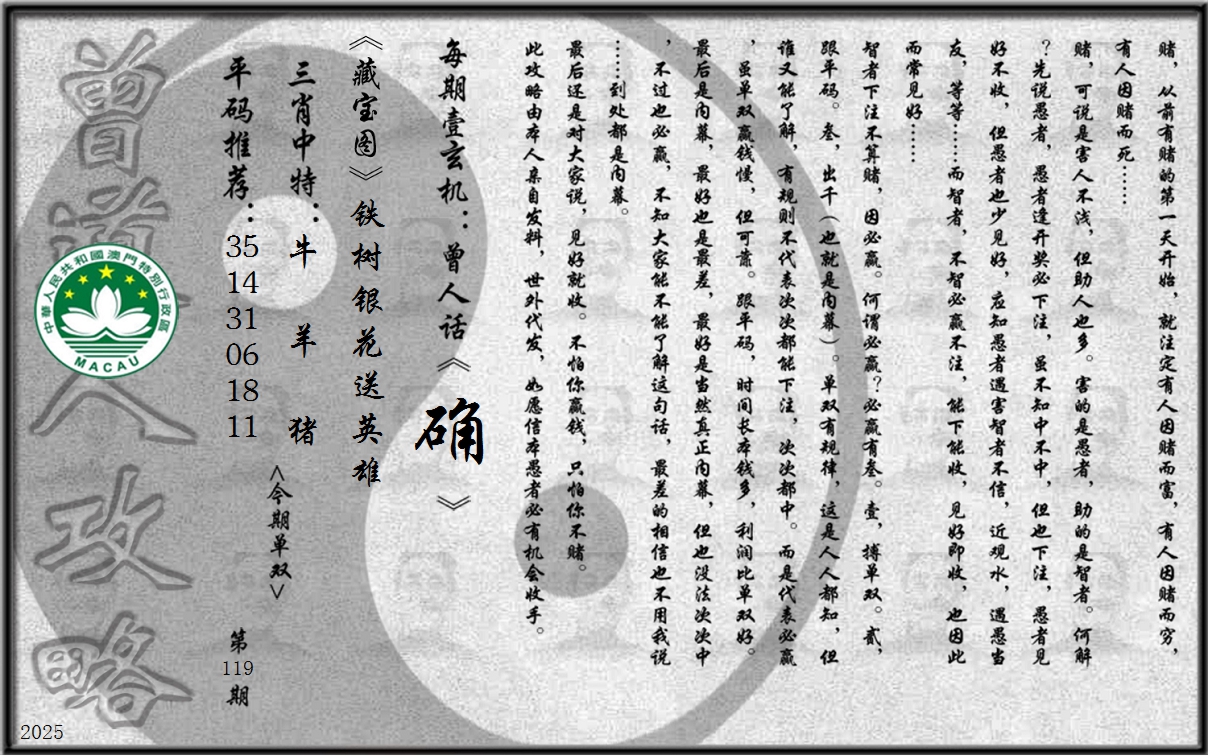 赌，从前有赌的第一天开始，就注定有人因赌而富，有人因赌而穷，
有人因赌而死……
赌，可说是害人不浅，但助人也多。害的是愚者，助的是智者。何解
？先说愚者，愚者逢开奖必下注，虽不知中不中，但也下注，愚者见
好不收，但愚者也少见好，应知愚者遇害智者不信，近观水，遇愚当
友，等等……而智者，不智必赢不注，能下能收，见好即收，也因此
而常见好……
智者下注不算赌，因必赢。何谓必赢？必赢有叁。壹，搏单双。贰，
跟平码。叁，出千（也就是内幕）。单双有规律，这是人人都知，但
谁又能了解，有规则不代表次次都能下注，次次都中。而是代表必赢
，虽单双赢钱慢，但可靠。跟平码，时间长本钱多，利润比单双好。
最后是内幕，最好也是最差，最好是当然真正内幕，但也没法次次中
，不过也必赢，不知大家能不能了解这句话，最差的相信也不用我说
……到处都是内幕。
最后还是对大家说，见好就收。不怕你赢钱，只怕你不赌。
此攻略由本人亲自发料，世外代发，如愿信本愚者必有机会收手。
每期壹玄机：曾人话《确》
《藏宝图》铁树银花送英雄
三肖中特：牛 羊 猪
<今期单双>
平码推荐：35 14 31 06 18 11
第119期
曾道人攻略
中華人民共和國澳門特別行政區
MACAU
2025